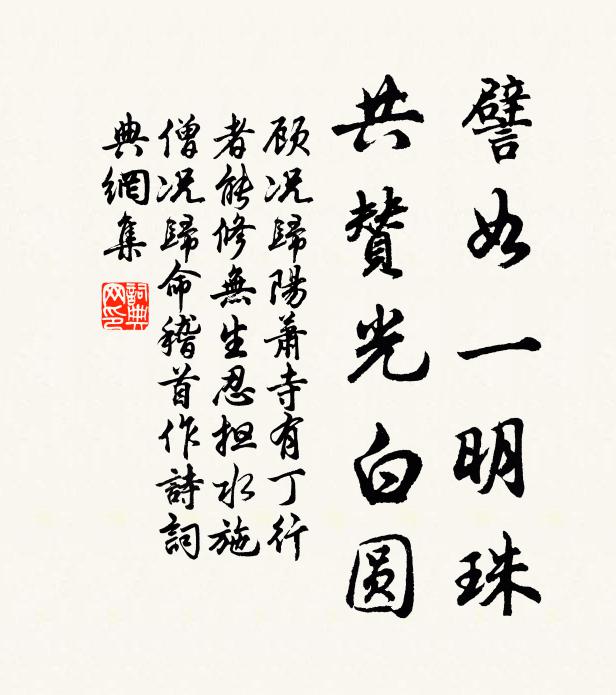 譬如一明珠
共贊光白圆
顾况歸陽蕭寺有丁行
者能修無生忍担水施
僧况歸命稽首作詩詞
典網集
詞典
网印